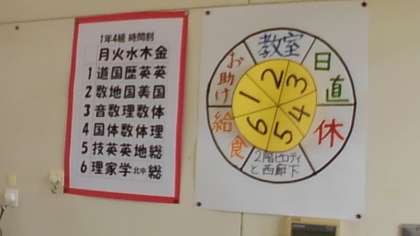 1年4組 時間割
月火水木金
1 道国歴英英
2 数地国美国
3 音数理数体
4 国体数体理
5 技英英地総
6 理家学北中総
教室
日直
休
2階ピロティと西廊下
給食
お助け
1 2 3 4 5 6